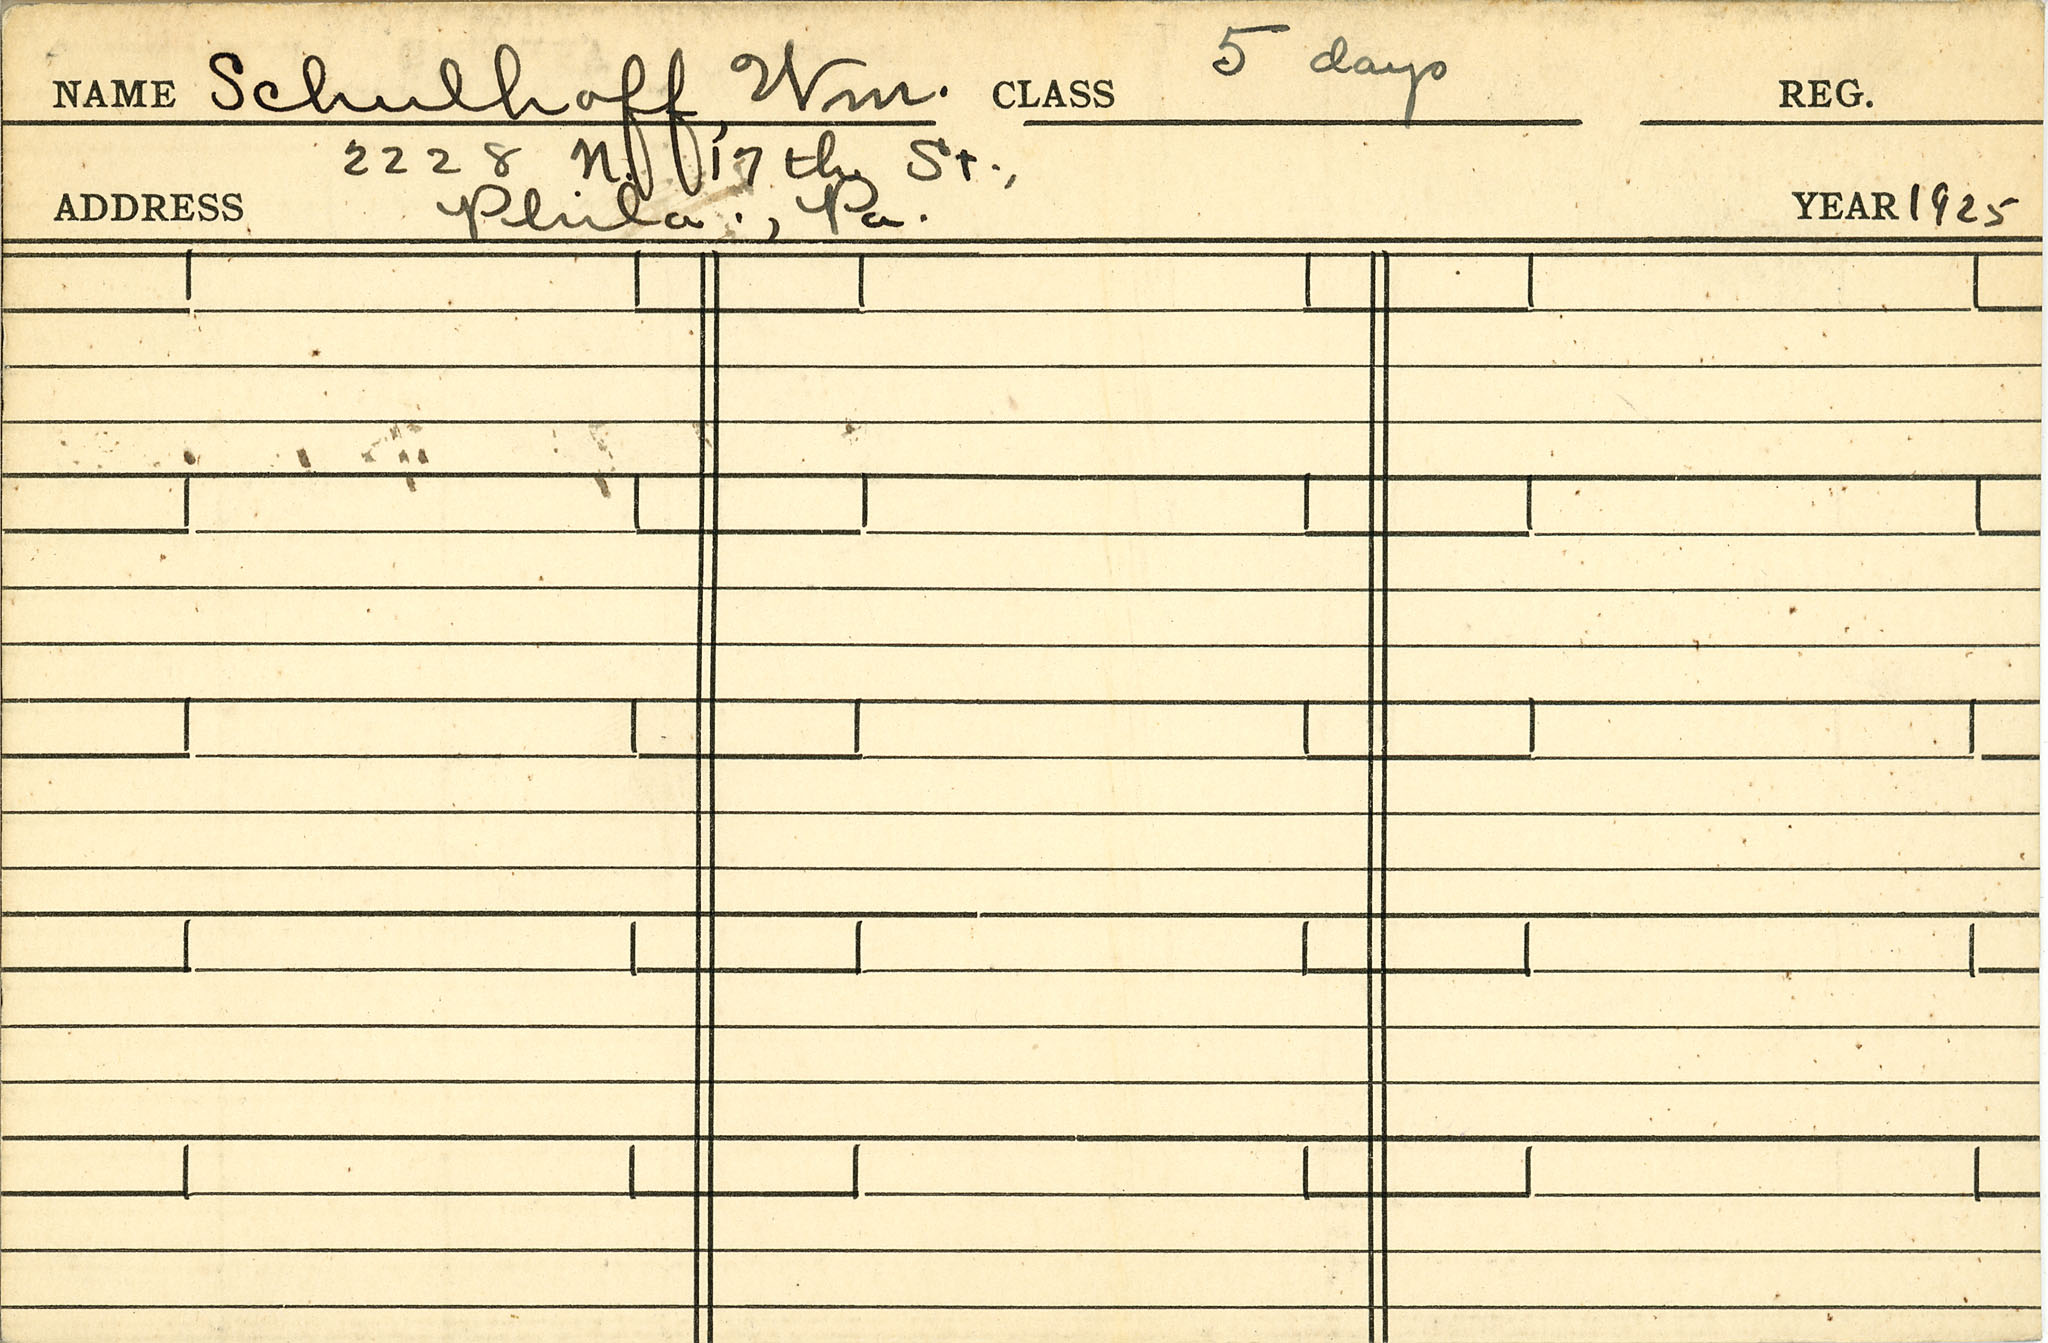 NAME Schulhoff, Wm. CLASS 5 days REG.
2228 N. 17th St.,
ADDRESS Phila., Pa. YEAR 1925